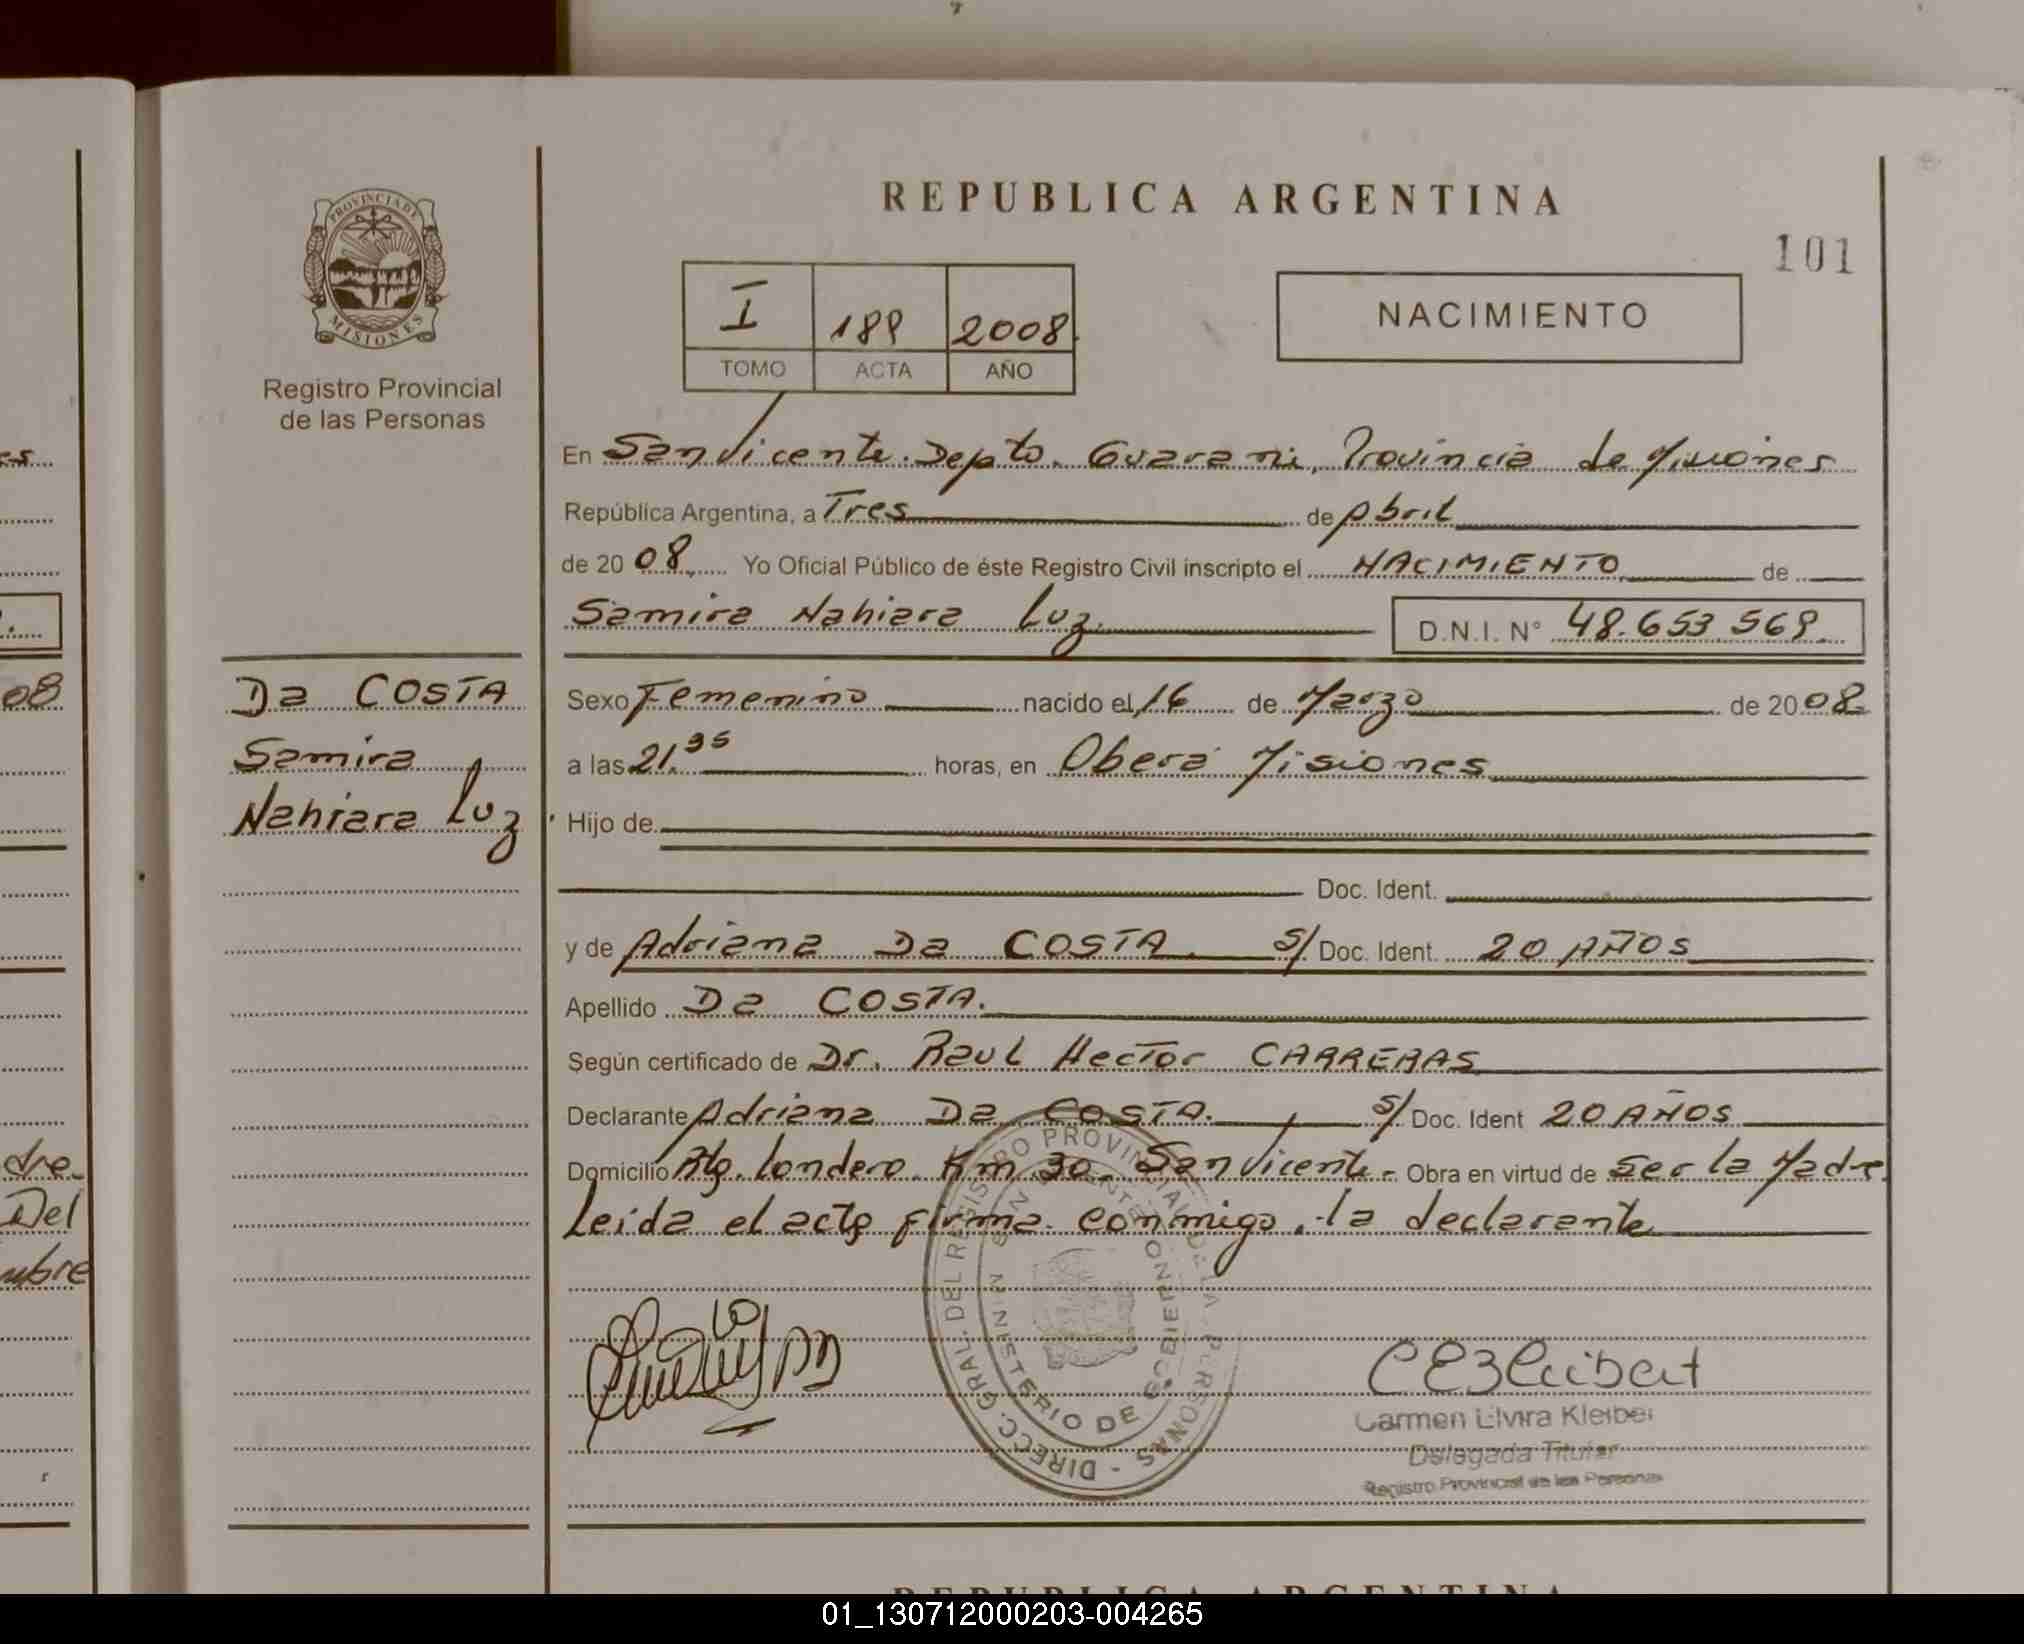 REPUBLICA ARGENTINA
101
PROVINCIA DE
MISIONES
Registro Provincial
de las Personas
I 189 2008
TOMO ACTA AÑO
NACIMIENTO
En San Vicente. Depto. Guarani, Provincia de Misiones
República Argentina, a Tres de Abril
de 20 08 Yo Oficial Público de éste Registro Civil inscripto el NACIMIENTO de
Samira Nahiara Luz. D.N.I. N° 48.653.569.
Da COSTA
Samira
Nahiara Luz
Sexo Femenino nacido el 16 de Marzo de 20 08
a las 21.35 horas, en Oberá Misiones
Hijo de
Doc. Ident.
y de Adriana Da COSTA. S/ Doc. Ident. 20 AÑOS
Apellido Da COSTA.
Según certificado de Dr. Raul Hector CARRERAS
Declarante Adriana Da COSTA. S/ Doc. Ident 20 AÑOS
Domicilio Rta. Londero Km 30- San Vicente- Obra en virtud de ser la Madre
Leida el acta firma conmigo. la declarante
DIRECC. GRAL. DEL REGISTRO PROVINCIAL DE LA PERSONAS
MINISTERIO DE GOBIERNO
SAN VICENTE
Carmen Elvira Kleiber
Delegada Titular
Registro Provincial de las Personas
es
08
dre.
Del
mbre
REPUBLICA ARGENTINA
01_130712000203-004265